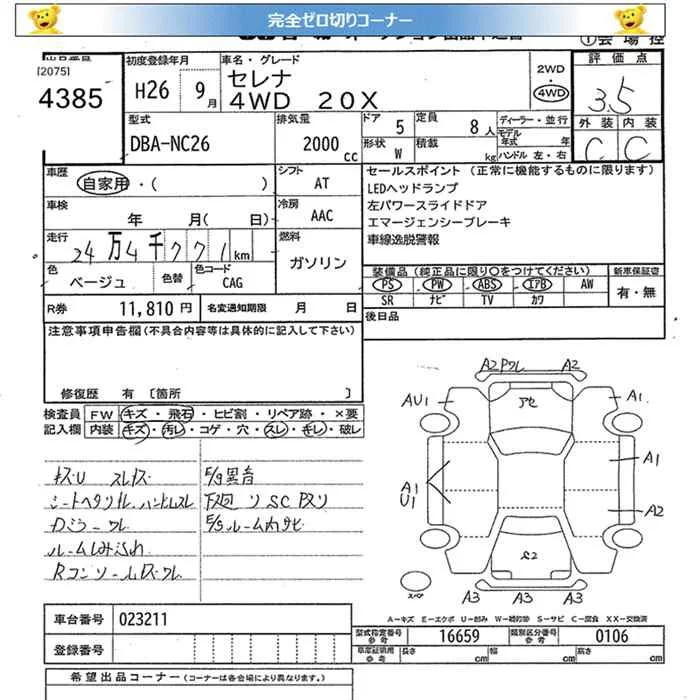 完全ゼロ切りコーナー
出品番号
[2075]
4385
初度登録年月
H26 9月
車名・グレード
セレナ
4WD 20X
2WD
4WD
評価点
3.5
外装 内装
C C
型式
DBA-NC26
排気量
2000 cc
ドア 5
定員 8人
形状 W
積載 kg
ディーラー・並行
モデル年式 年
ハンドル 左・右
車歴
自家用・( )
シフト
AT
車検
年 月( 日)
冷房
AAC
走行
24万4千771km
燃料
ガソリン
色
ベージュ
色替
色コード
CAG
セールスポイント (正常に機能するものに限ります)
LEDヘッドランプ
左パワースライドドア
エマージェンシーブレーキ
車線逸脱警報
装備品(純正品に限り○をつけてください)
PS PW ABS エアB AW
SR ナビ TV カワ
新車保証書
有・無
R券 11,810円
名変通知期限 月 日
後日品
注意事項申告欄(不具合内容等は具体的に記入して下さい)
修復歴 有 [箇所 ]
検査員
記入欄
FW キズ・飛石・ヒビ割・リペア跡・×要
内装 キズ・汚レ・コゲ・穴・スレ・キレ・破レ
キズU スレキズ
シートヘタリ ハンドルスレ
カジラーワレ
ルームしみ汚れ
Rコンソールキズワレ
E/g異音
下廻り SC キズり
E/Sルーム内サビ
A2 Pワレ A2
AU1
アセ
A1
A1
U1
A1
A2
A3 A3 A3
スペア
A-キズ E-エクボ U-凹み W-補修跡 S-サビ C-腐食 XX-交換済
車台番号 023211
登録番号
型式指定番号
参考
16659
類別区分番号
参考
0106
長さ cm
幅 cm
高さ cm
希望出品コーナー (コーナーは各会場により異なります。)